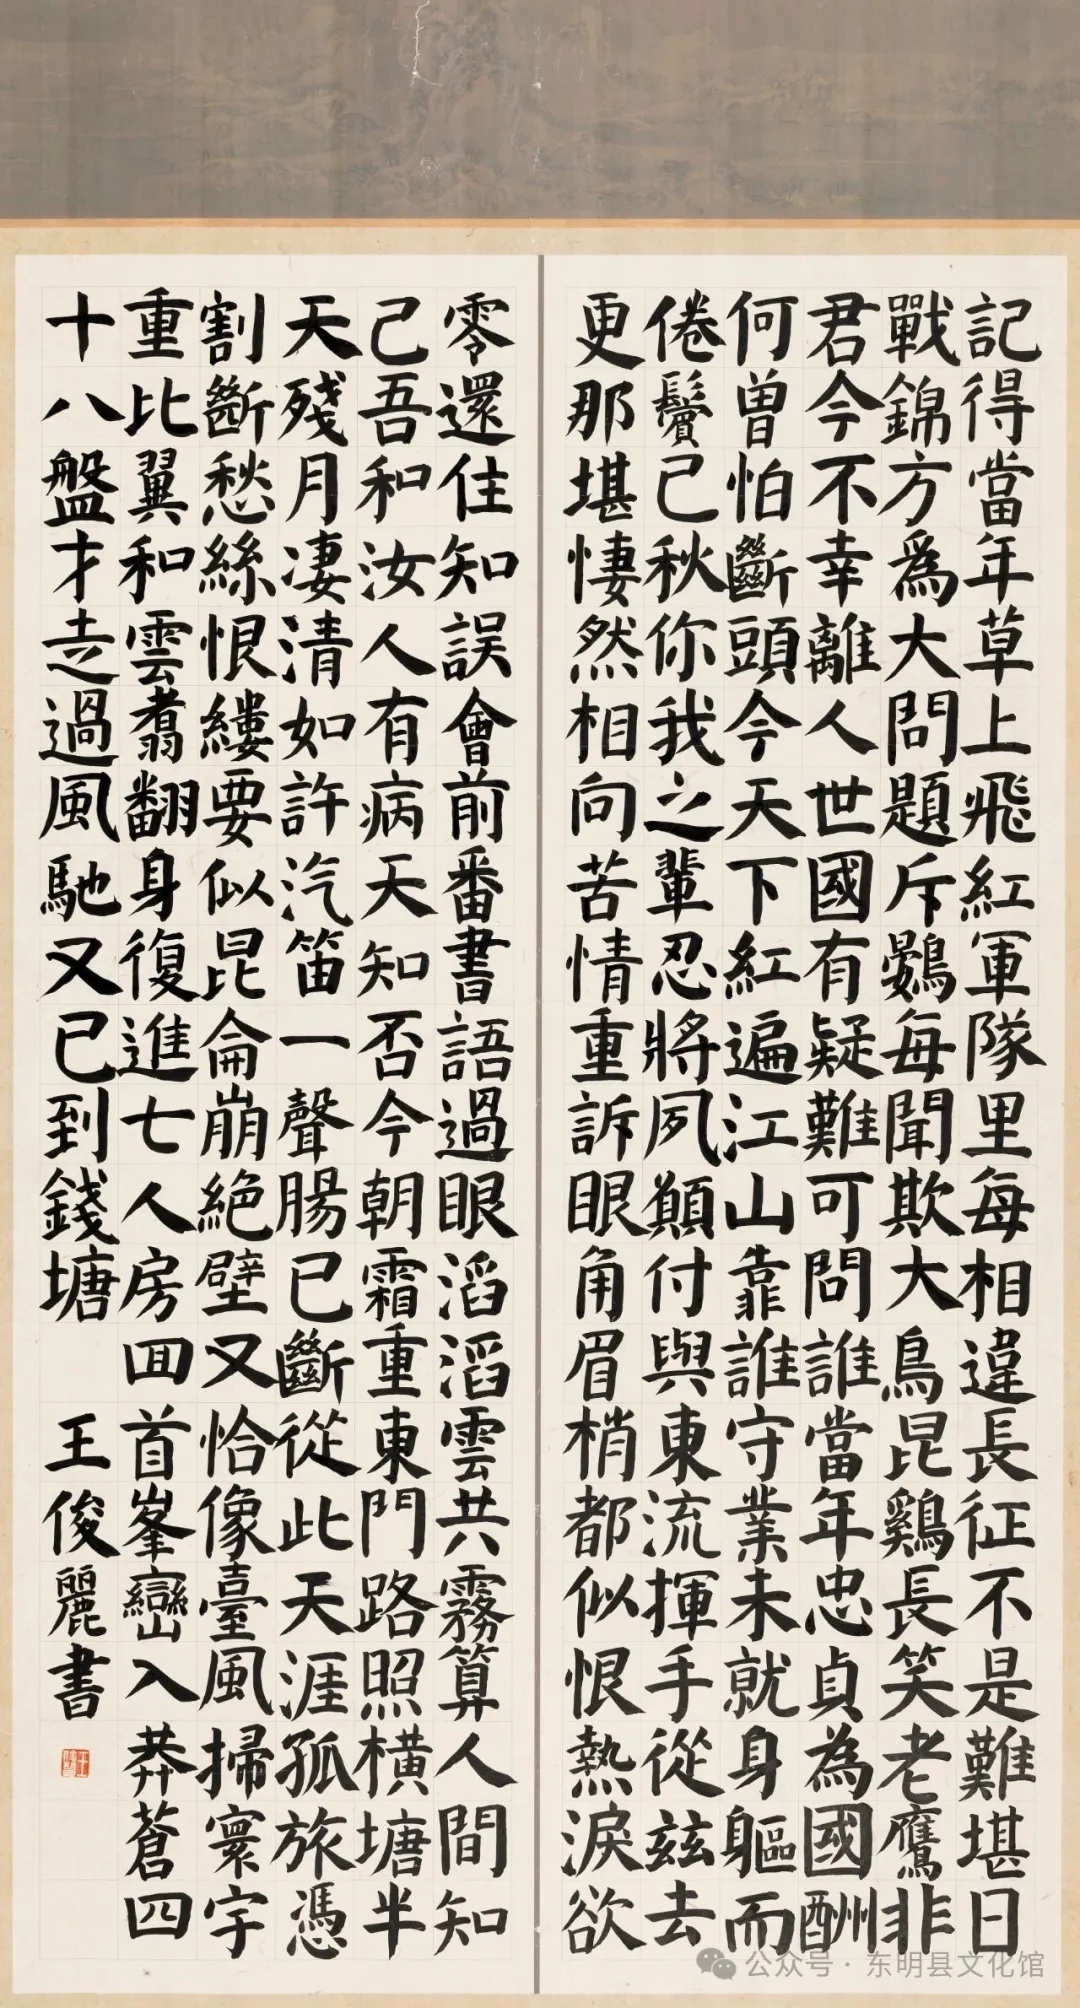 記得當年草上飛紅軍隊里每相違長征不是難堪日
戰錦方為大問題斥鷃每聞欺大鳥昆鷄長笑老鷹非
君今不幸離人世國有疑難可問誰當年忠貞為國酬
何曾怕斷頭今天下紅遍江山靠誰守業未就身軀而
倦鬢已秋你我之輩忍將夙願付與東流揮手從兹去
更那堪悽然相向苦情重訴眼角眉梢都似恨熱淚欲
零還住知誤會前番書語過眼滔滔雲共霧算人間知
己吾和汝人有病天知否今朝霜重東門路照橫塘半
天殘月凄清如許汽笛一聲腸已斷從此天涯孤旅憑
割斷愁絲恨縷要似昆侖崩絕壁又恰像臺風掃寰宇
重比翼和雲翥翻身復進七人房回首峯巒入莽蒼四
十八盤才走過風馳又已到錢塘 王俊麗書
公众号·东明县文化馆